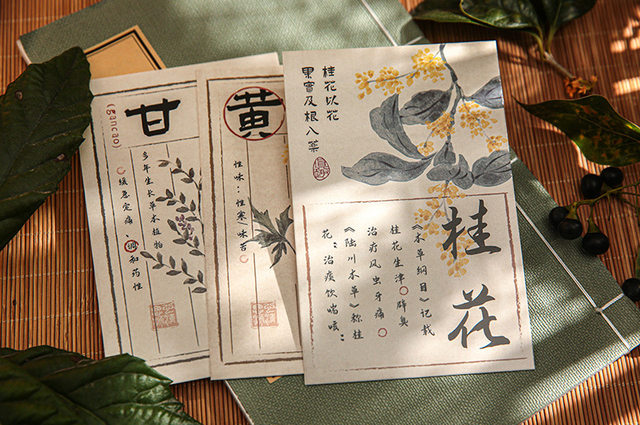 甘
(Gancao)
多年生长草本植物
缓急定痛·调和药性
黄
性味：性寒味苦
桂花以花
果實及根入
桂花
《本草纲目》记载
桂花生津 辟臭
治疗风虫牙痛
《陆川本草》称桂
花：治痰饮喘咳：